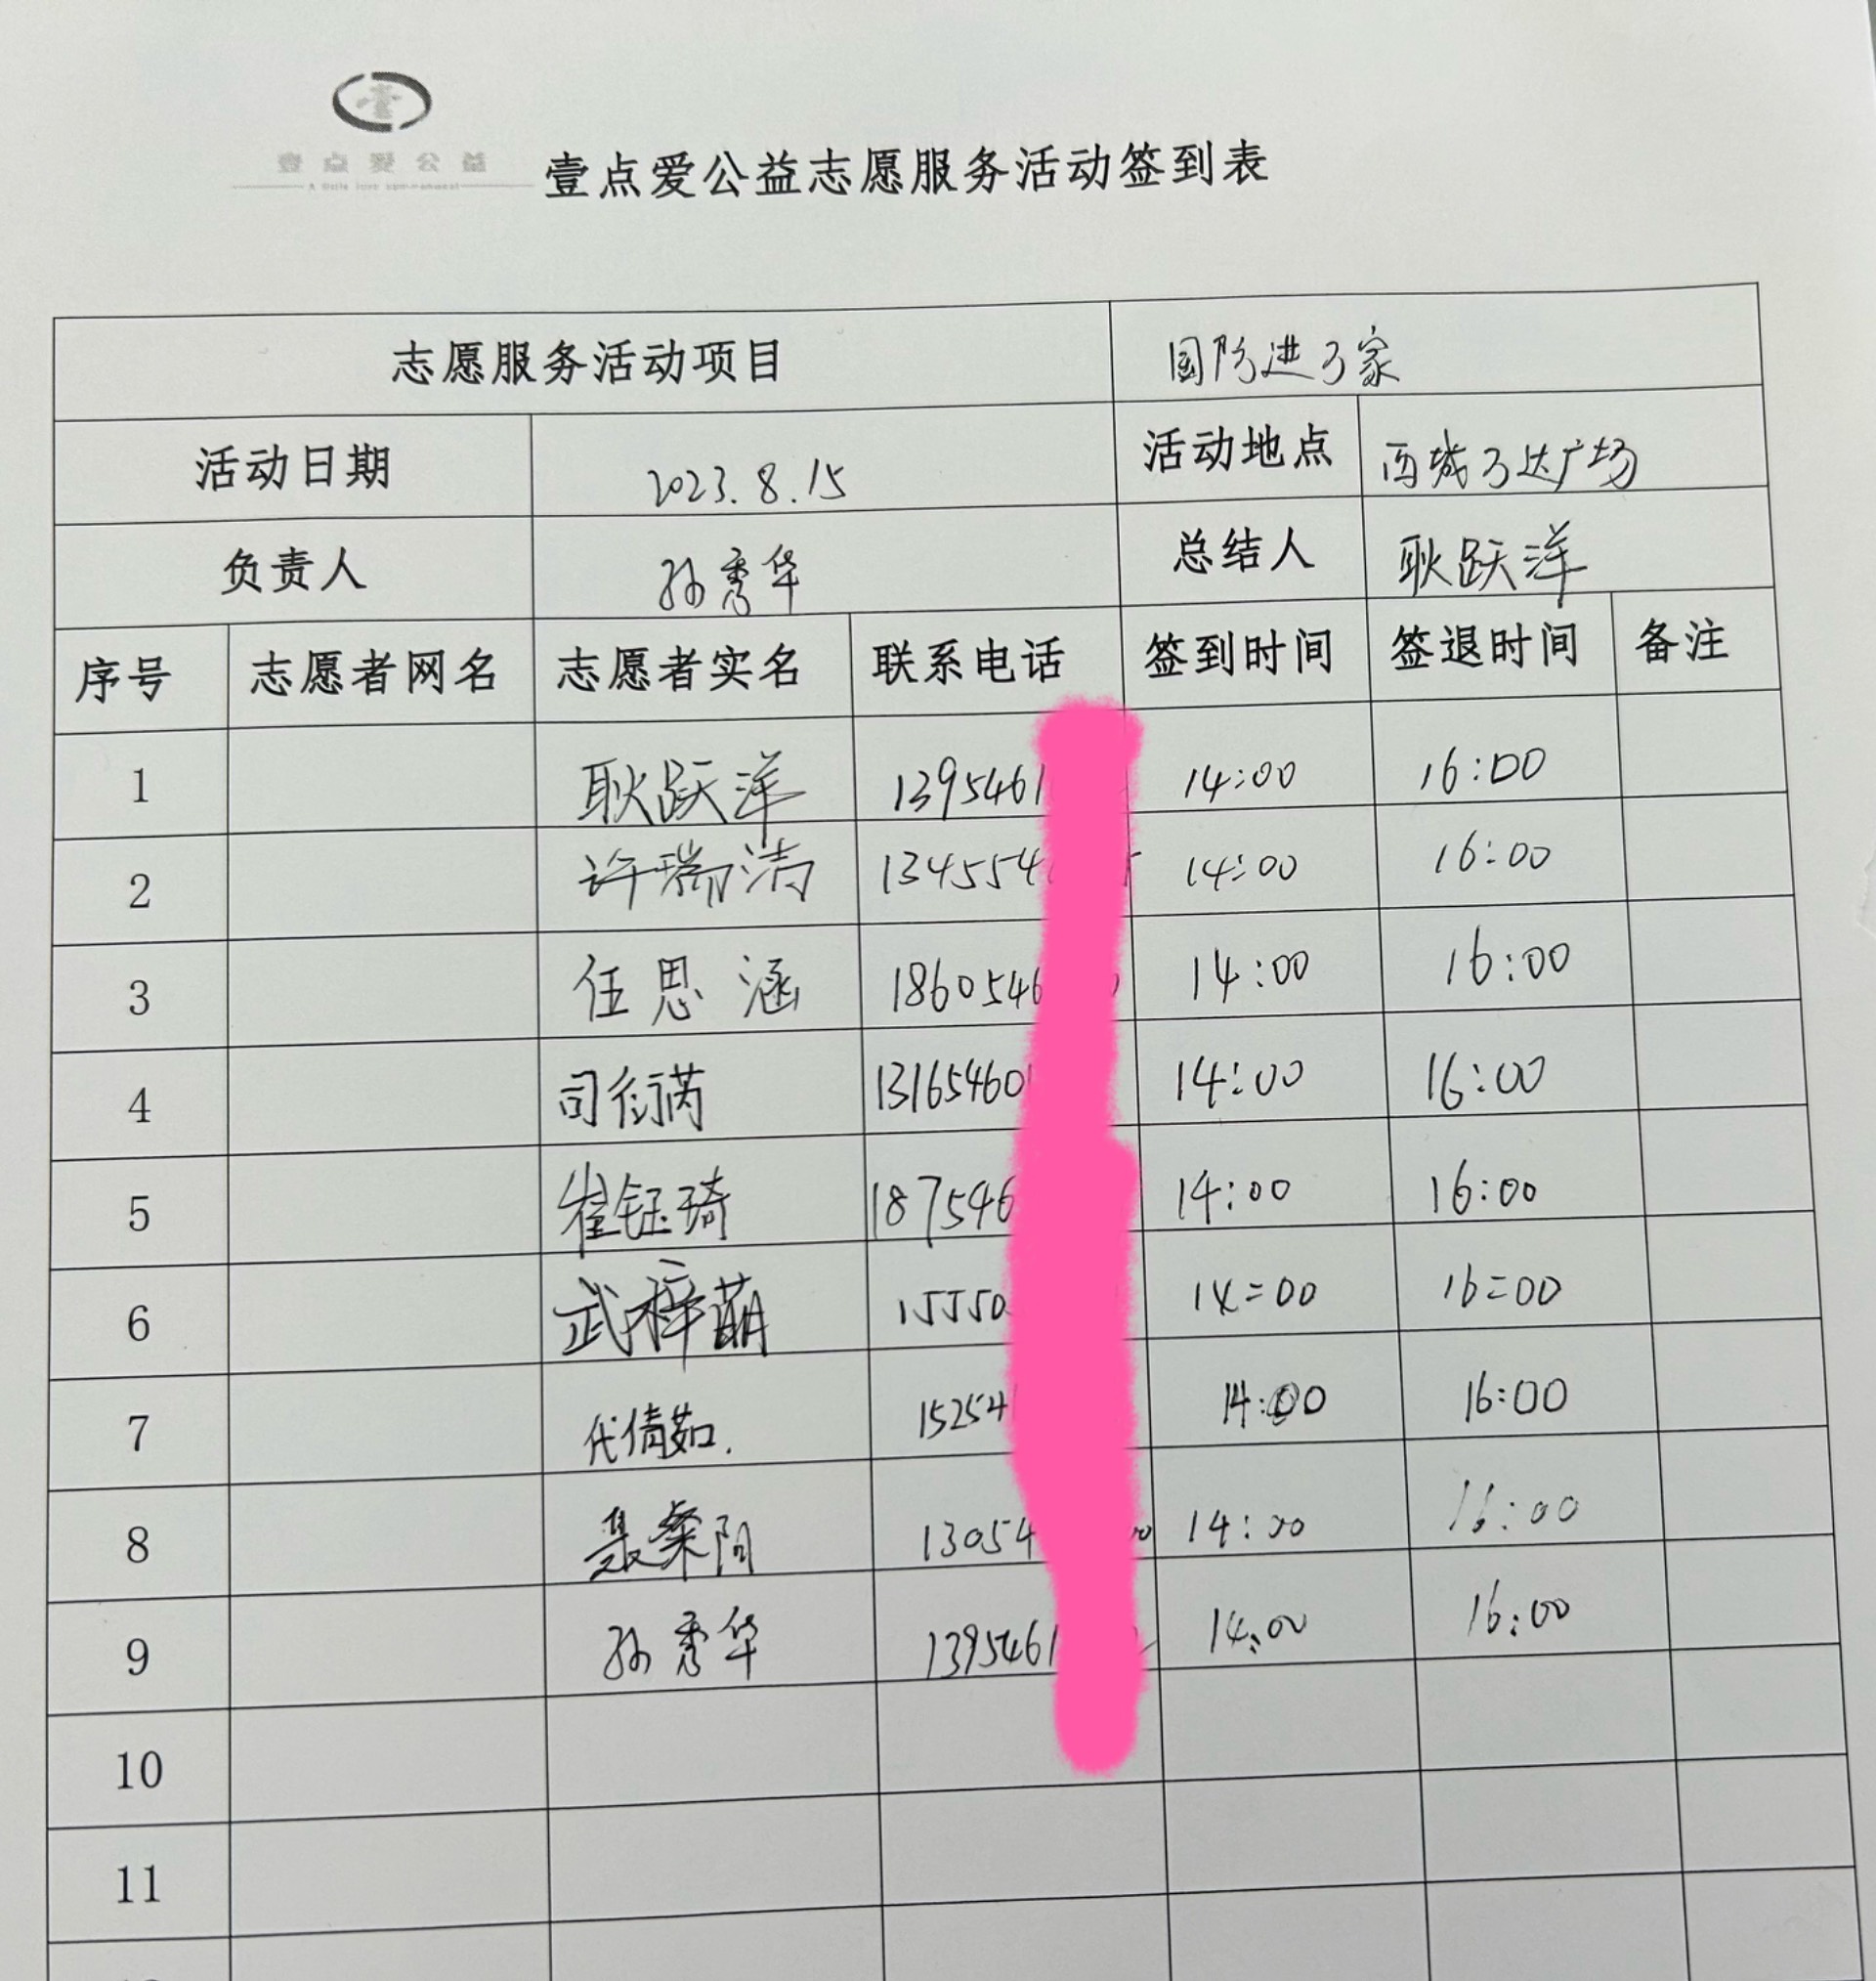 壹点爱公益
壹点爱公益志愿服务活动签到表
志愿服务活动项目 国防进万家
活动日期 2023.8.15 活动地点 西城万达广场
负责人 孙秀华 总结人 耿跃洋
序号 志愿者网名 志愿者实名 联系电话 签到时间 签退时间 备注
1 耿跃洋 1395461 14:00 16:00
2 许瑞洁 1345546 14:00 16:00
3 任思涵 1860546 14:00 16:00
4 司 13165460 14:00 16:00
5 崔钰琦 187546 14:00 16:00
6 武梓萌 15550 14:00 16:00
7 代倩茹. 15254 14:00 16:00
8 聂 13054 14:00 16:00
9 孙秀华 1395461 14:00 16:00
10
11